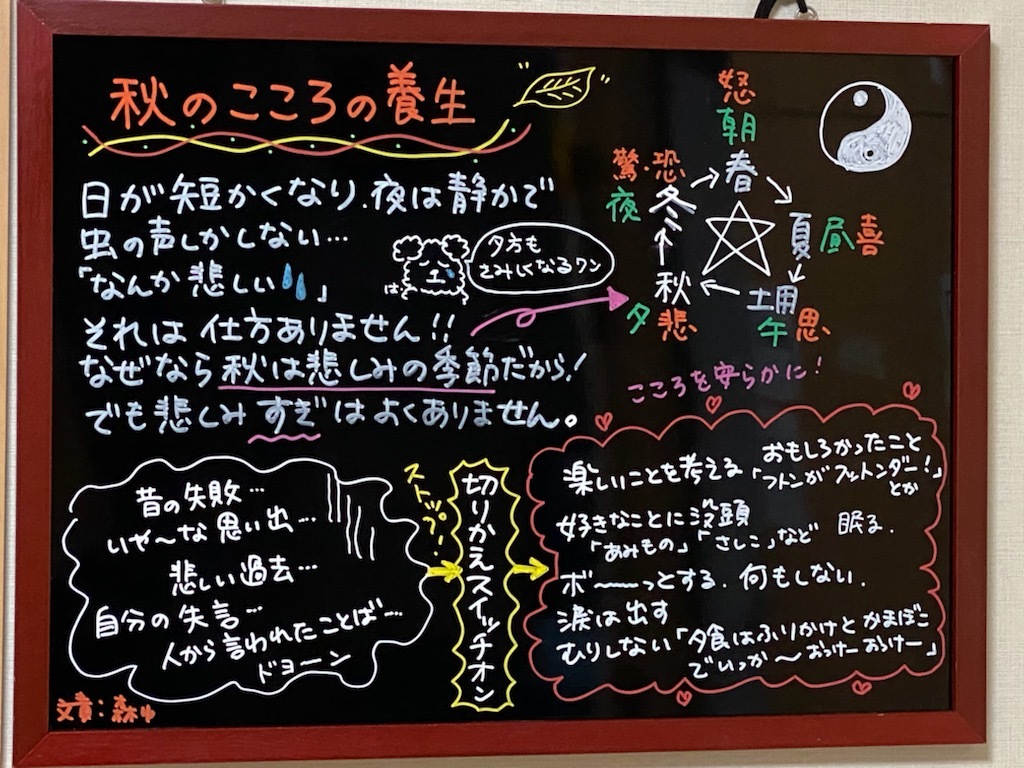 秋のこころの養生
日が短かくなり、夜は静かで
虫の声しかしない…
「なんか悲しい」
それは仕方ありません!!
なぜなら秋は悲しみの季節だから!
でも悲しみすぎはよくありません。
夕方も
さみしくなるワン
は
怒
朝
春
驚・恐
夜
冬
夏
昼
喜
秋
夕
悲
土用
午
思
こころを安らかに!
昔の失敗…
いや〜な思い出…
悲しい過去…
自分の失言…
人から言われたことば…
ドヨーン
ストップ!
切りかえスイッチオン
楽しいことを考える
おもしろかったこと
「フトンがフットンダー!」
とか
好きなことに没頭
「あみもの」「さしこ」など
眠る.
ボ〜〜っとする. 何もしない.
涙は出す
むりしない「夕食はふりかけと かまぼこ
でいっか〜 おっけー おっけー」
文責:森ゆ